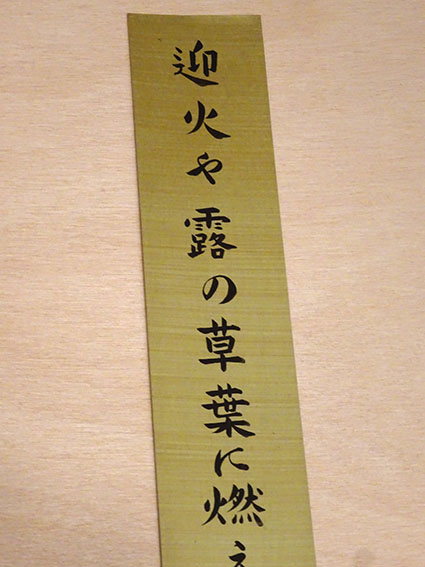 迎火や露の草葉に燃え